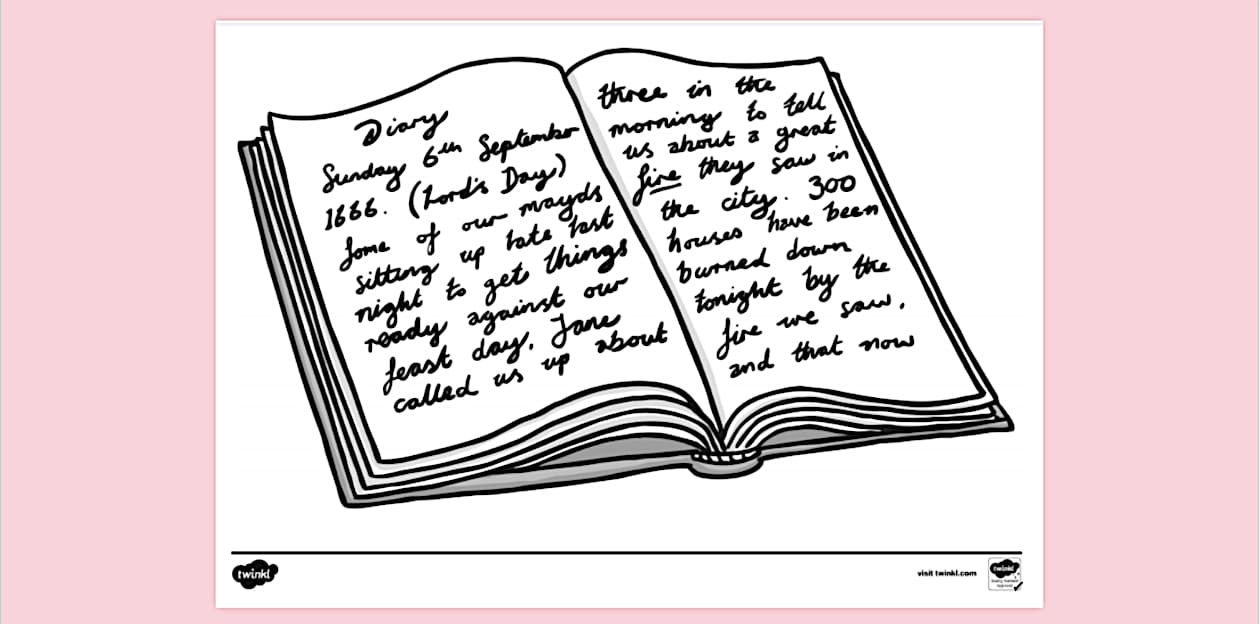 Diary
Sunday 6th September
1666. (Lord's Day)
Some of our mayds
sitting up late last
night to get things
ready against our
feast day. Jane
called us up about
three in the
morning to tell
us about a great
fire they saw in
the city. 300
houses have been
burned down
tonight by the
fire we saw.
and that now
twinkl
visit twinkl.com
twinkl